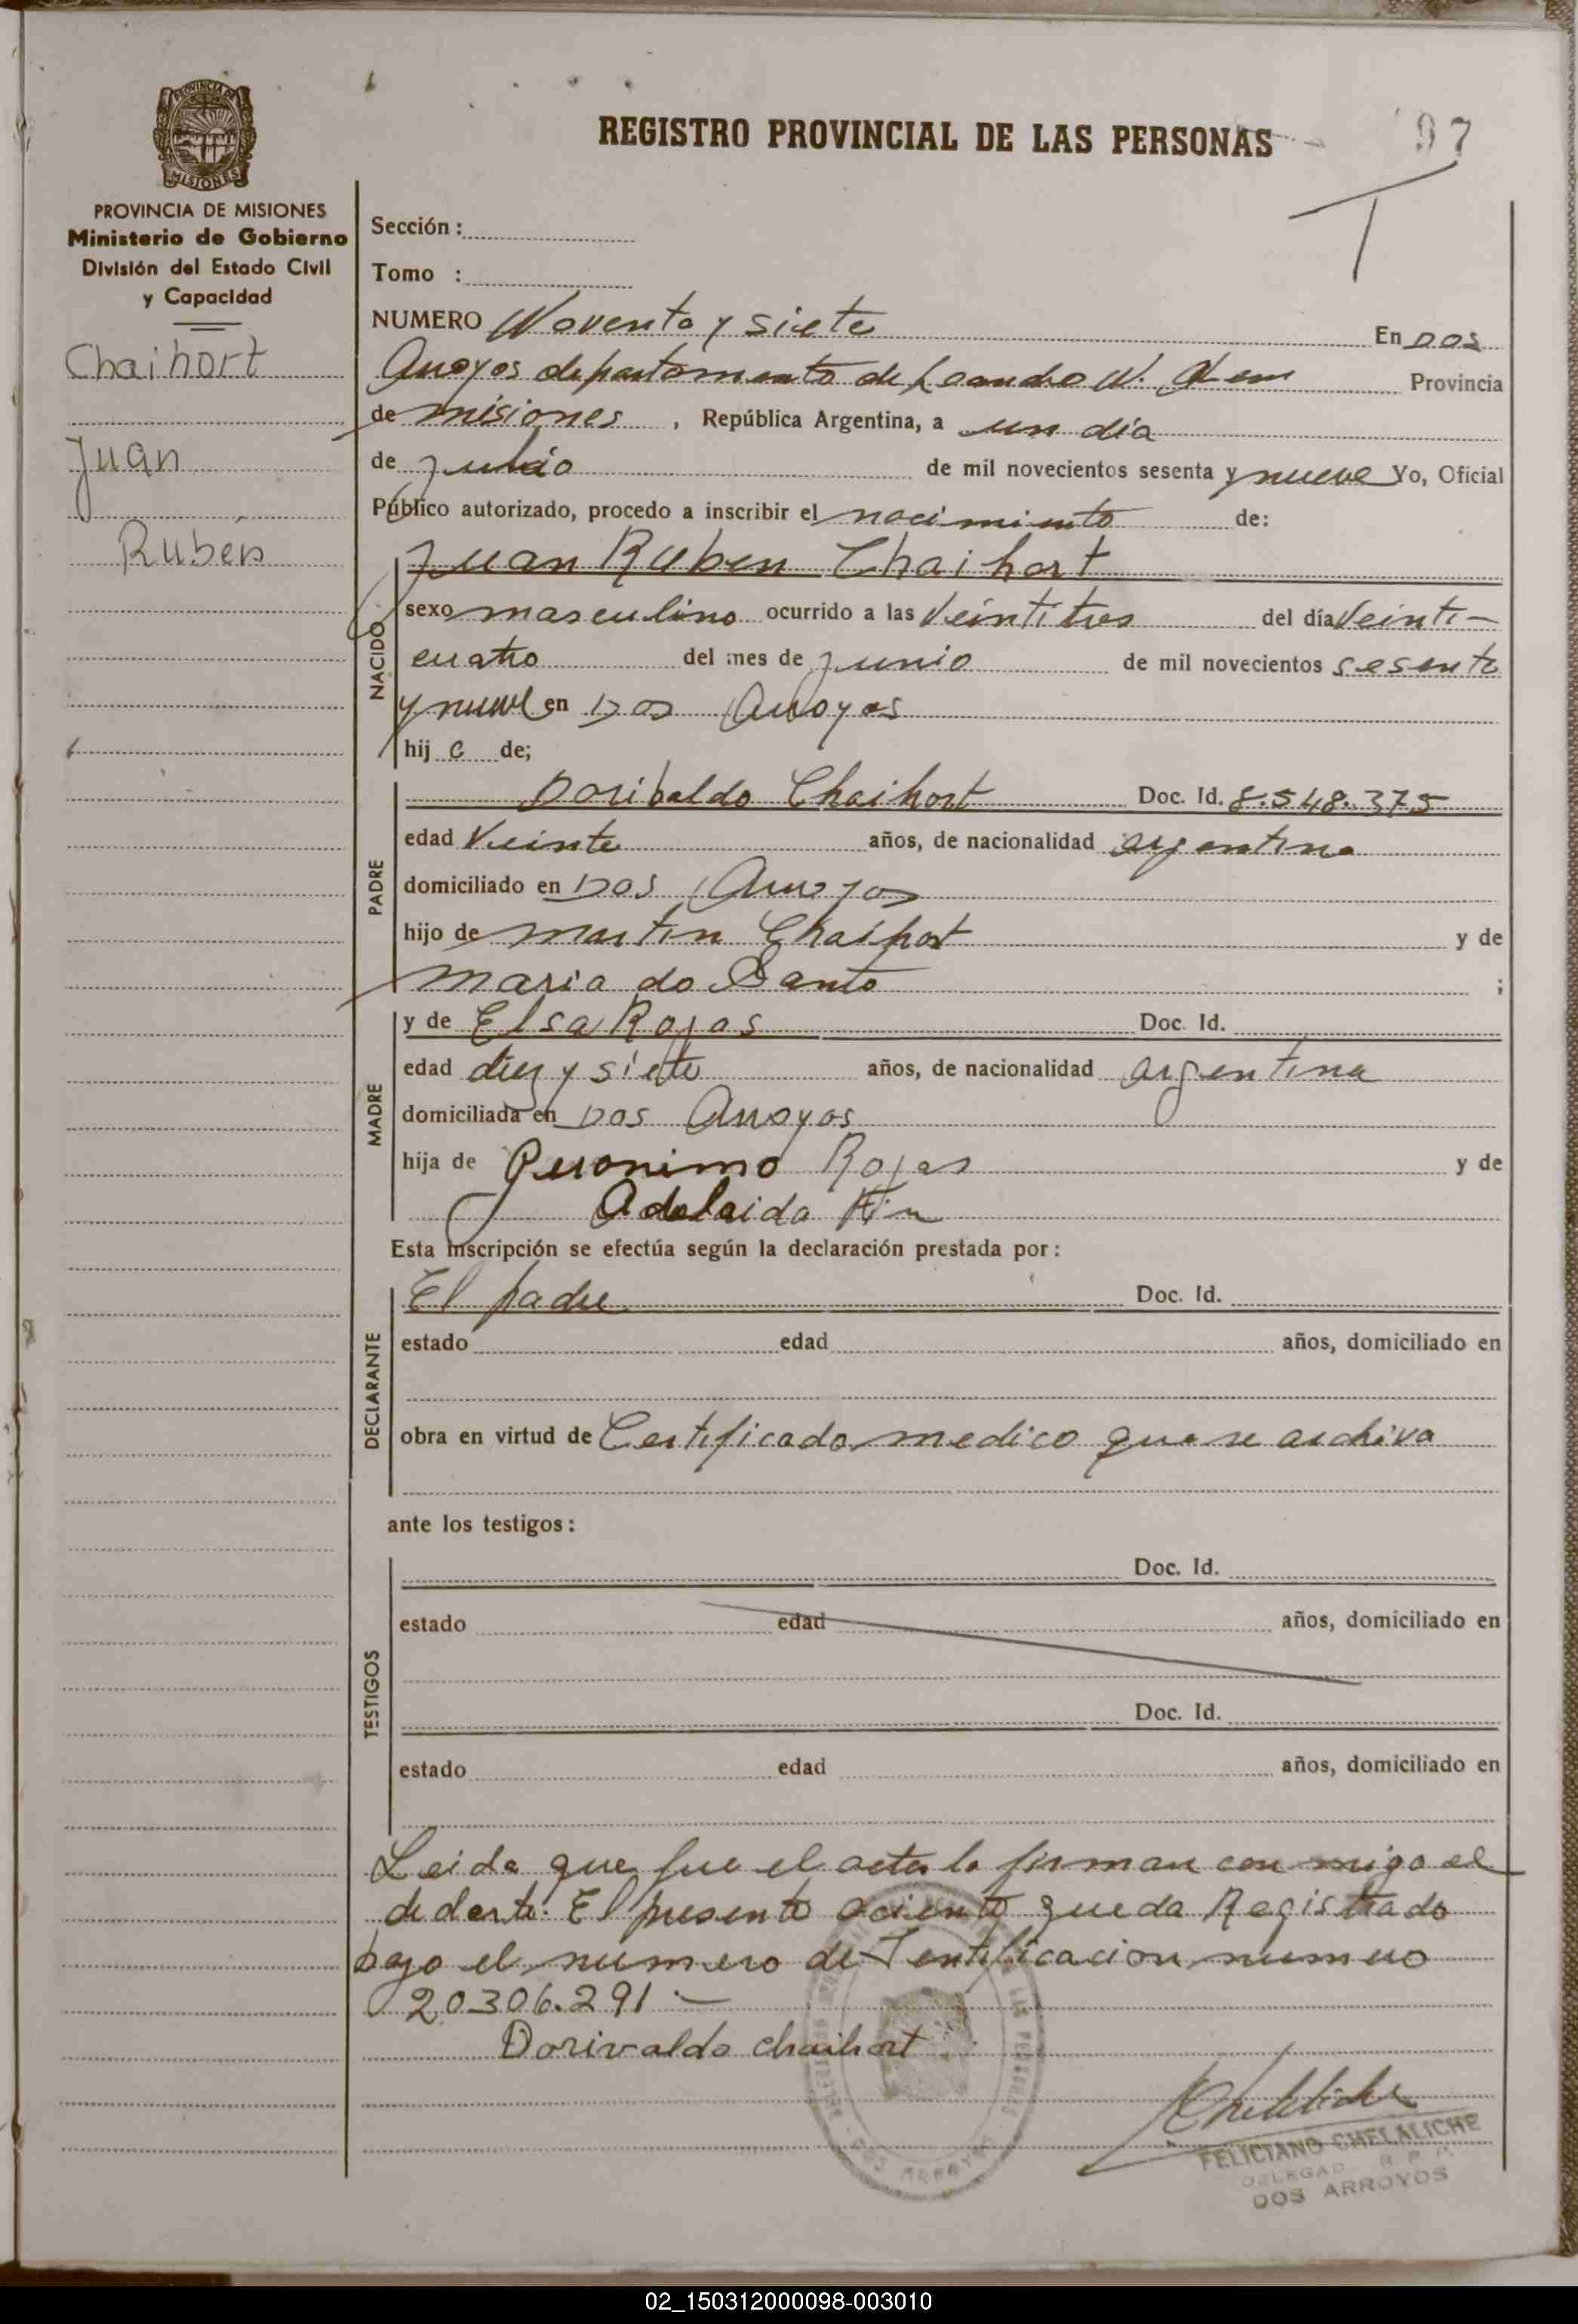 PROVINCIA DE MISIONES
REGISTRO PROVINCIAL DE LAS PERSONAS
97
PROVINCIA DE MISIONES
Ministerio de Gobierno
División del Estado Civil
y Capacidad
Chaihort
Juan
Rubén
Sección :
Tomo :
NUMERO Noventa y siete En Dos
Arroyos departamento de Leandro N. Alem Provincia
de misiones , República Argentina, a un dia
de Julio de mil novecientos sesenta y nueve Yo, Oficial
Público autorizado, procedo a inscribir el nacimiento de:
Juan Ruben Chaihort
NACIDO
sexo masculino ocurrido a las Veintitres del día Veinti-
cuatro del mes de Junio de mil novecientos sesenta
y nueve en Dos Arroyos
hij o de;
PADRE
Doribaldo Chaihort Doc. Id. 8.548.375
edad Veinte años, de nacionalidad argentina
domiciliado en Dos Arroyos
hijo de martin Chaihort y de
maria do Santo ;
MADRE
y de Elsa Rojas Doc. Id.
edad diez y siete años, de nacionalidad argentina
domiciliada en Dos Arroyos
hija de Geronimo Rojas y de
Adelaida
Esta inscripción se efectúa según la declaración prestada por :
DECLARANTE
El padre Doc. Id.
estado edad años, domiciliado en
obra en virtud de Certificado medico que se archiva
ante los testigos :
TESTIGOS
Doc. Id.
estado edad años, domiciliado en
Doc. Id.
estado edad años, domiciliado en
Leida que fue el acta la firman con migo el
declarte. El presente aciento queda Registrado
bajo el numero de Ientificacion numero
20306.291.-
Dorivaldo chaihort
FELICIANO CHELALICHE
DELEGADO R. P. P.
DOS ARROYOS
DOS ARROYOS
02_150312000098-003010